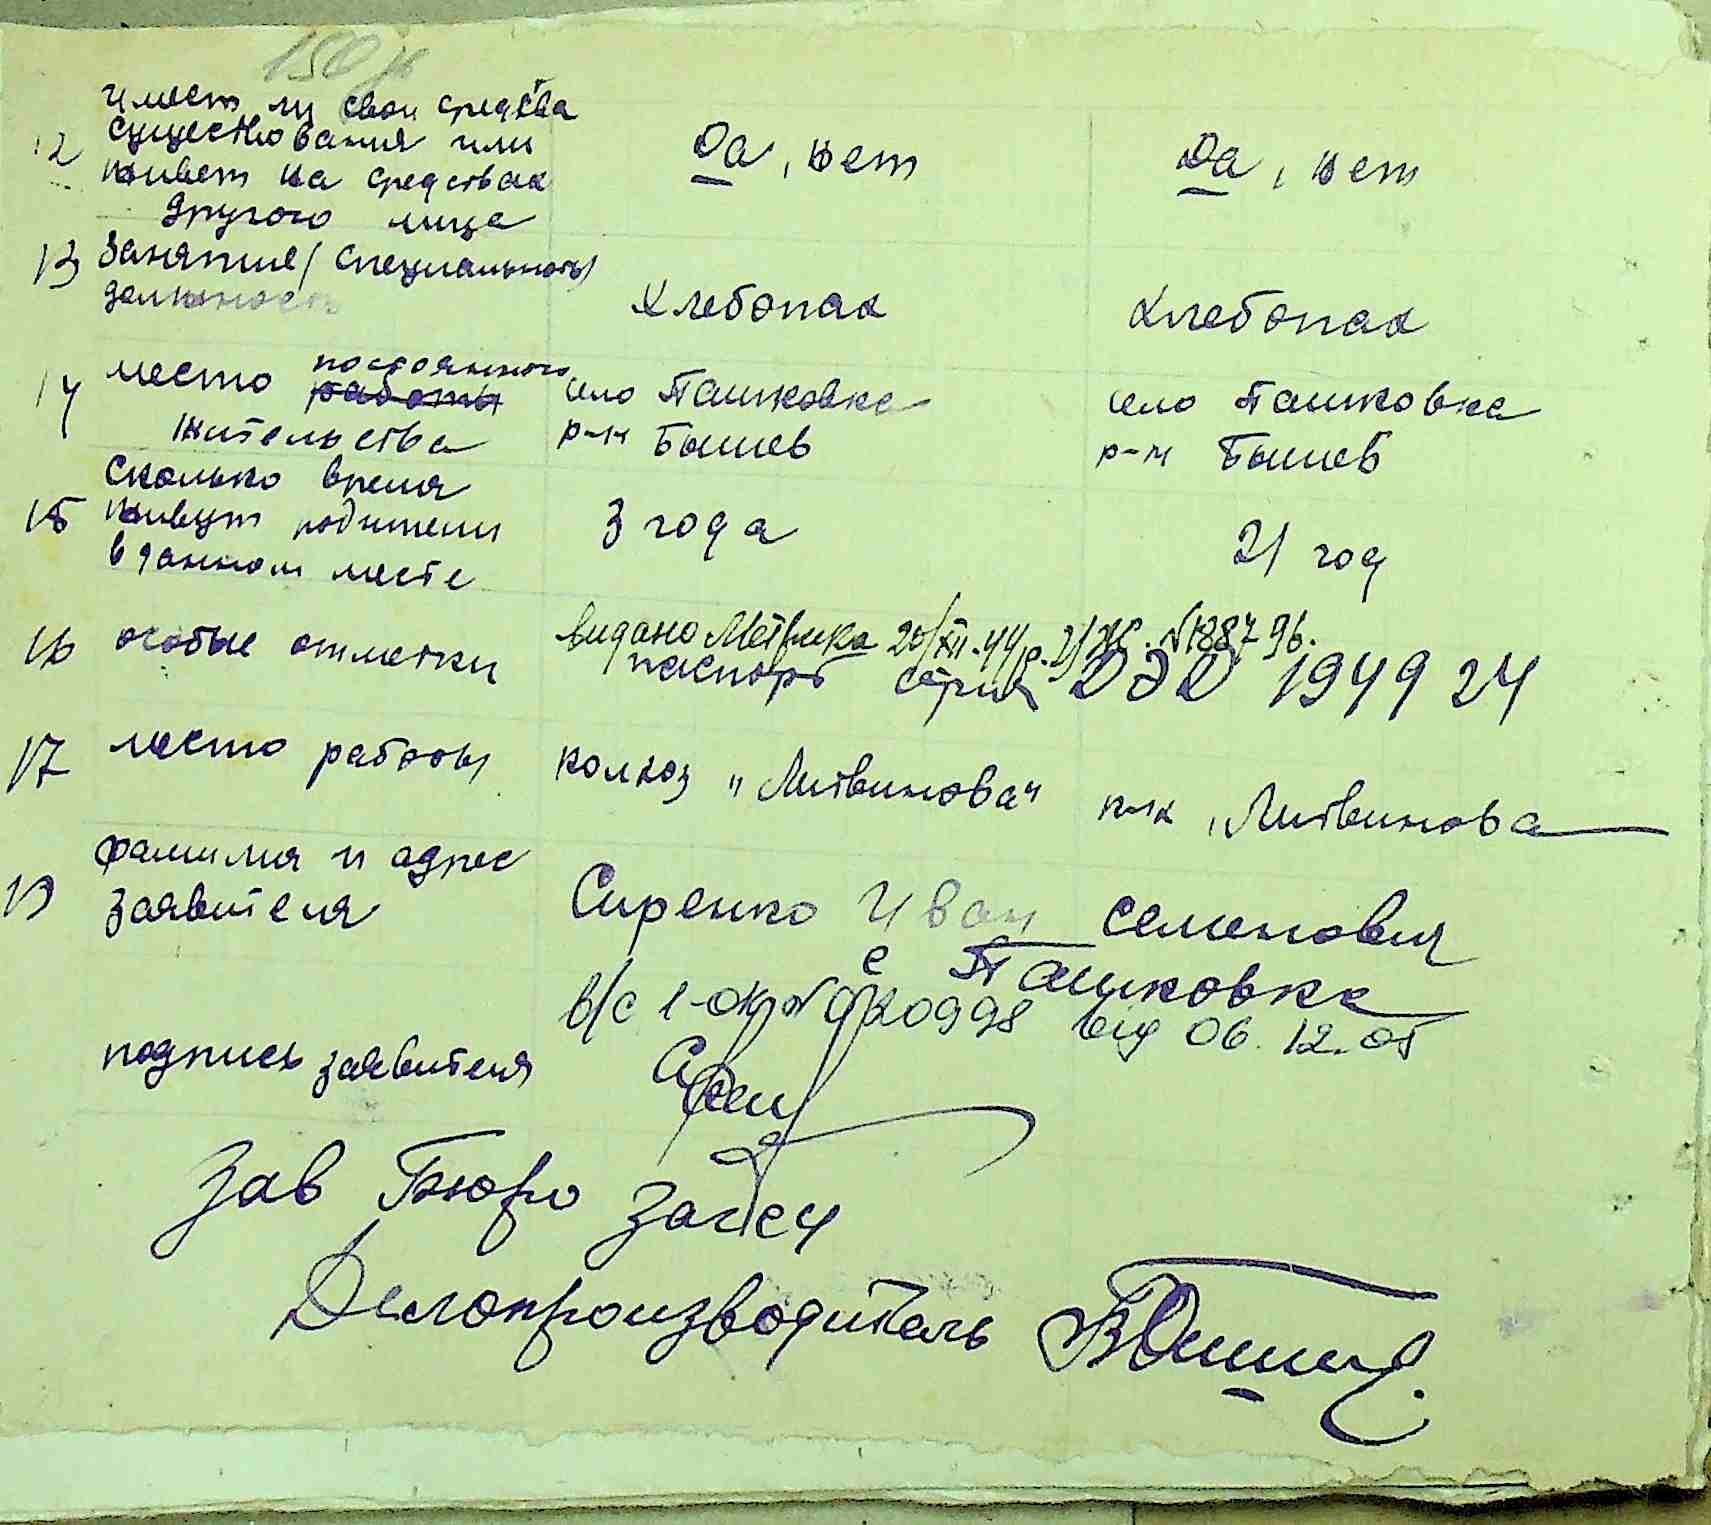 150
имеет ли свои средства
12 существования или
живет на средствах
другого лица
Да, нет
Да, нет
13 Занятие/специальность/
должность
Хлебопах
Хлебопах
14 место постоянного
работы
жительства
село Пашковка
р-н Бышев
село Пашковка
р-н Бышев
сколько время
15 живут родители
в данном месте
3 года
21 год
16 особые отметки
видано Метрика 20/XII-44 р.
паспорт серия 1949 24
17 место работы
колхоз "Литвинова"
к-к "Литвинова
фамилия и адрес
заявителя
Сиренко Иван Семенович
с Пашковка
в/с 1-ОК № 020998 від 06.12.05
подпись заявителя
Зав Бюро Загсу
Делопроизводитель